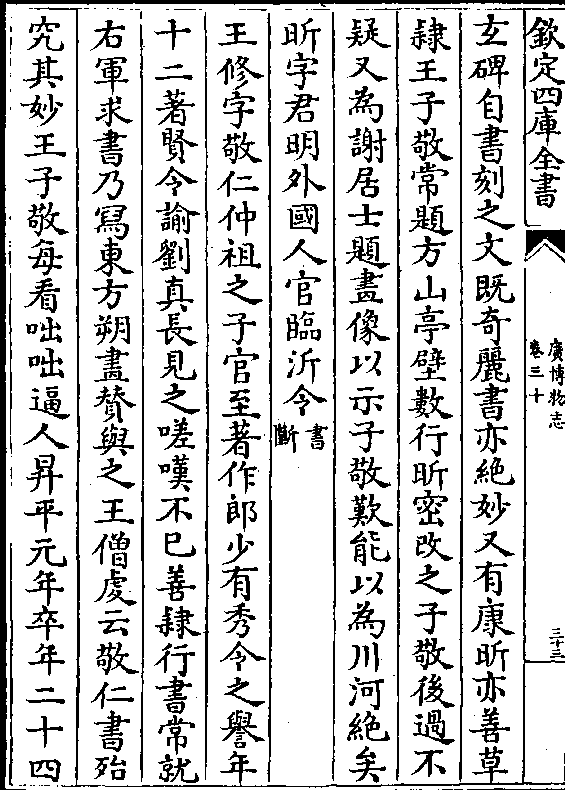 欽定四庫全書
廣博物志
卷三十
三十三
玄碑自書刻之文既奇麗書亦絶妙又有康昕亦善草
隷王子敬常題方山亭壁數行昕密改之子敬後過不
疑又為謝居士題畫像以示子敬歎能以為川河絶矣
昕字君明外國人官臨沂令書斷
王修字敬仁仲祖之子官至著作郎少有秀令之譽年
十二著賢令諭劉真長見之嗟嘆不已善隷行書常就
右軍求書乃寫東方朔畫贊與之王僧虔云敬仁書殆
究其妙王子敬每看咄咄逼人昇平元年卒年二十四